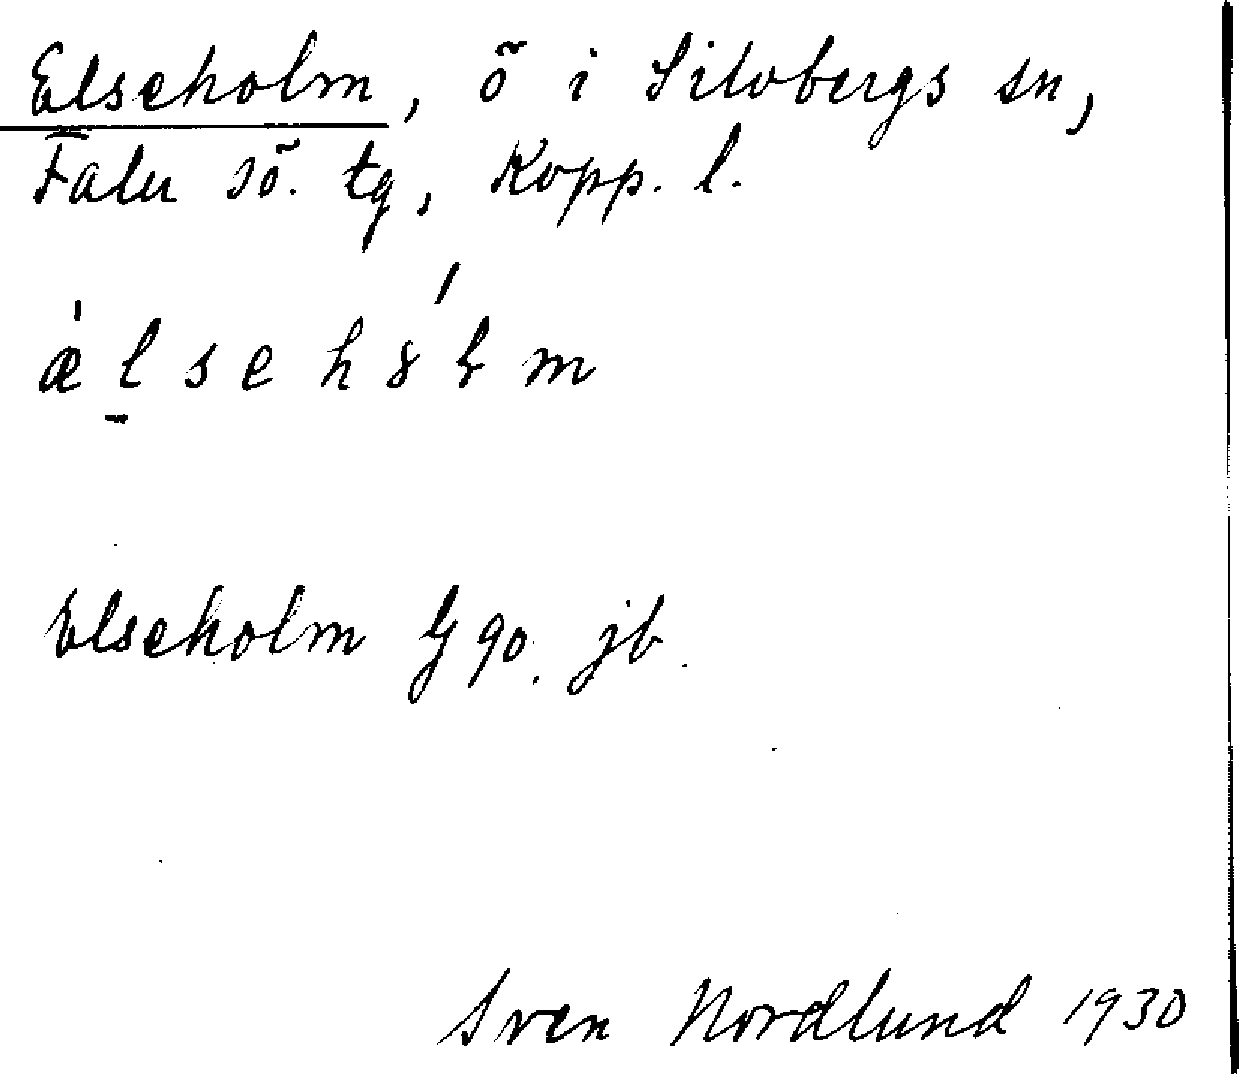 Elseholm, ö i Silvbergs sn,
Falu sö. tg, Kopp. l.
Elseholm G 90. jb.
Sven Nordlund 1930